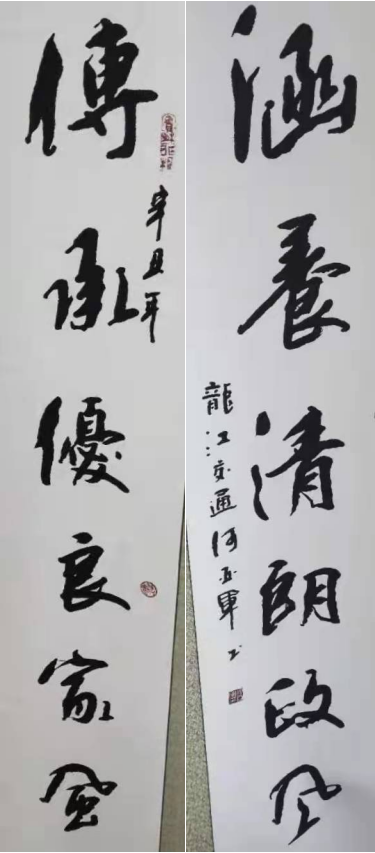 涵養清朗政风
龍江交通何玉軍书
辛丑年
傳承優良家風